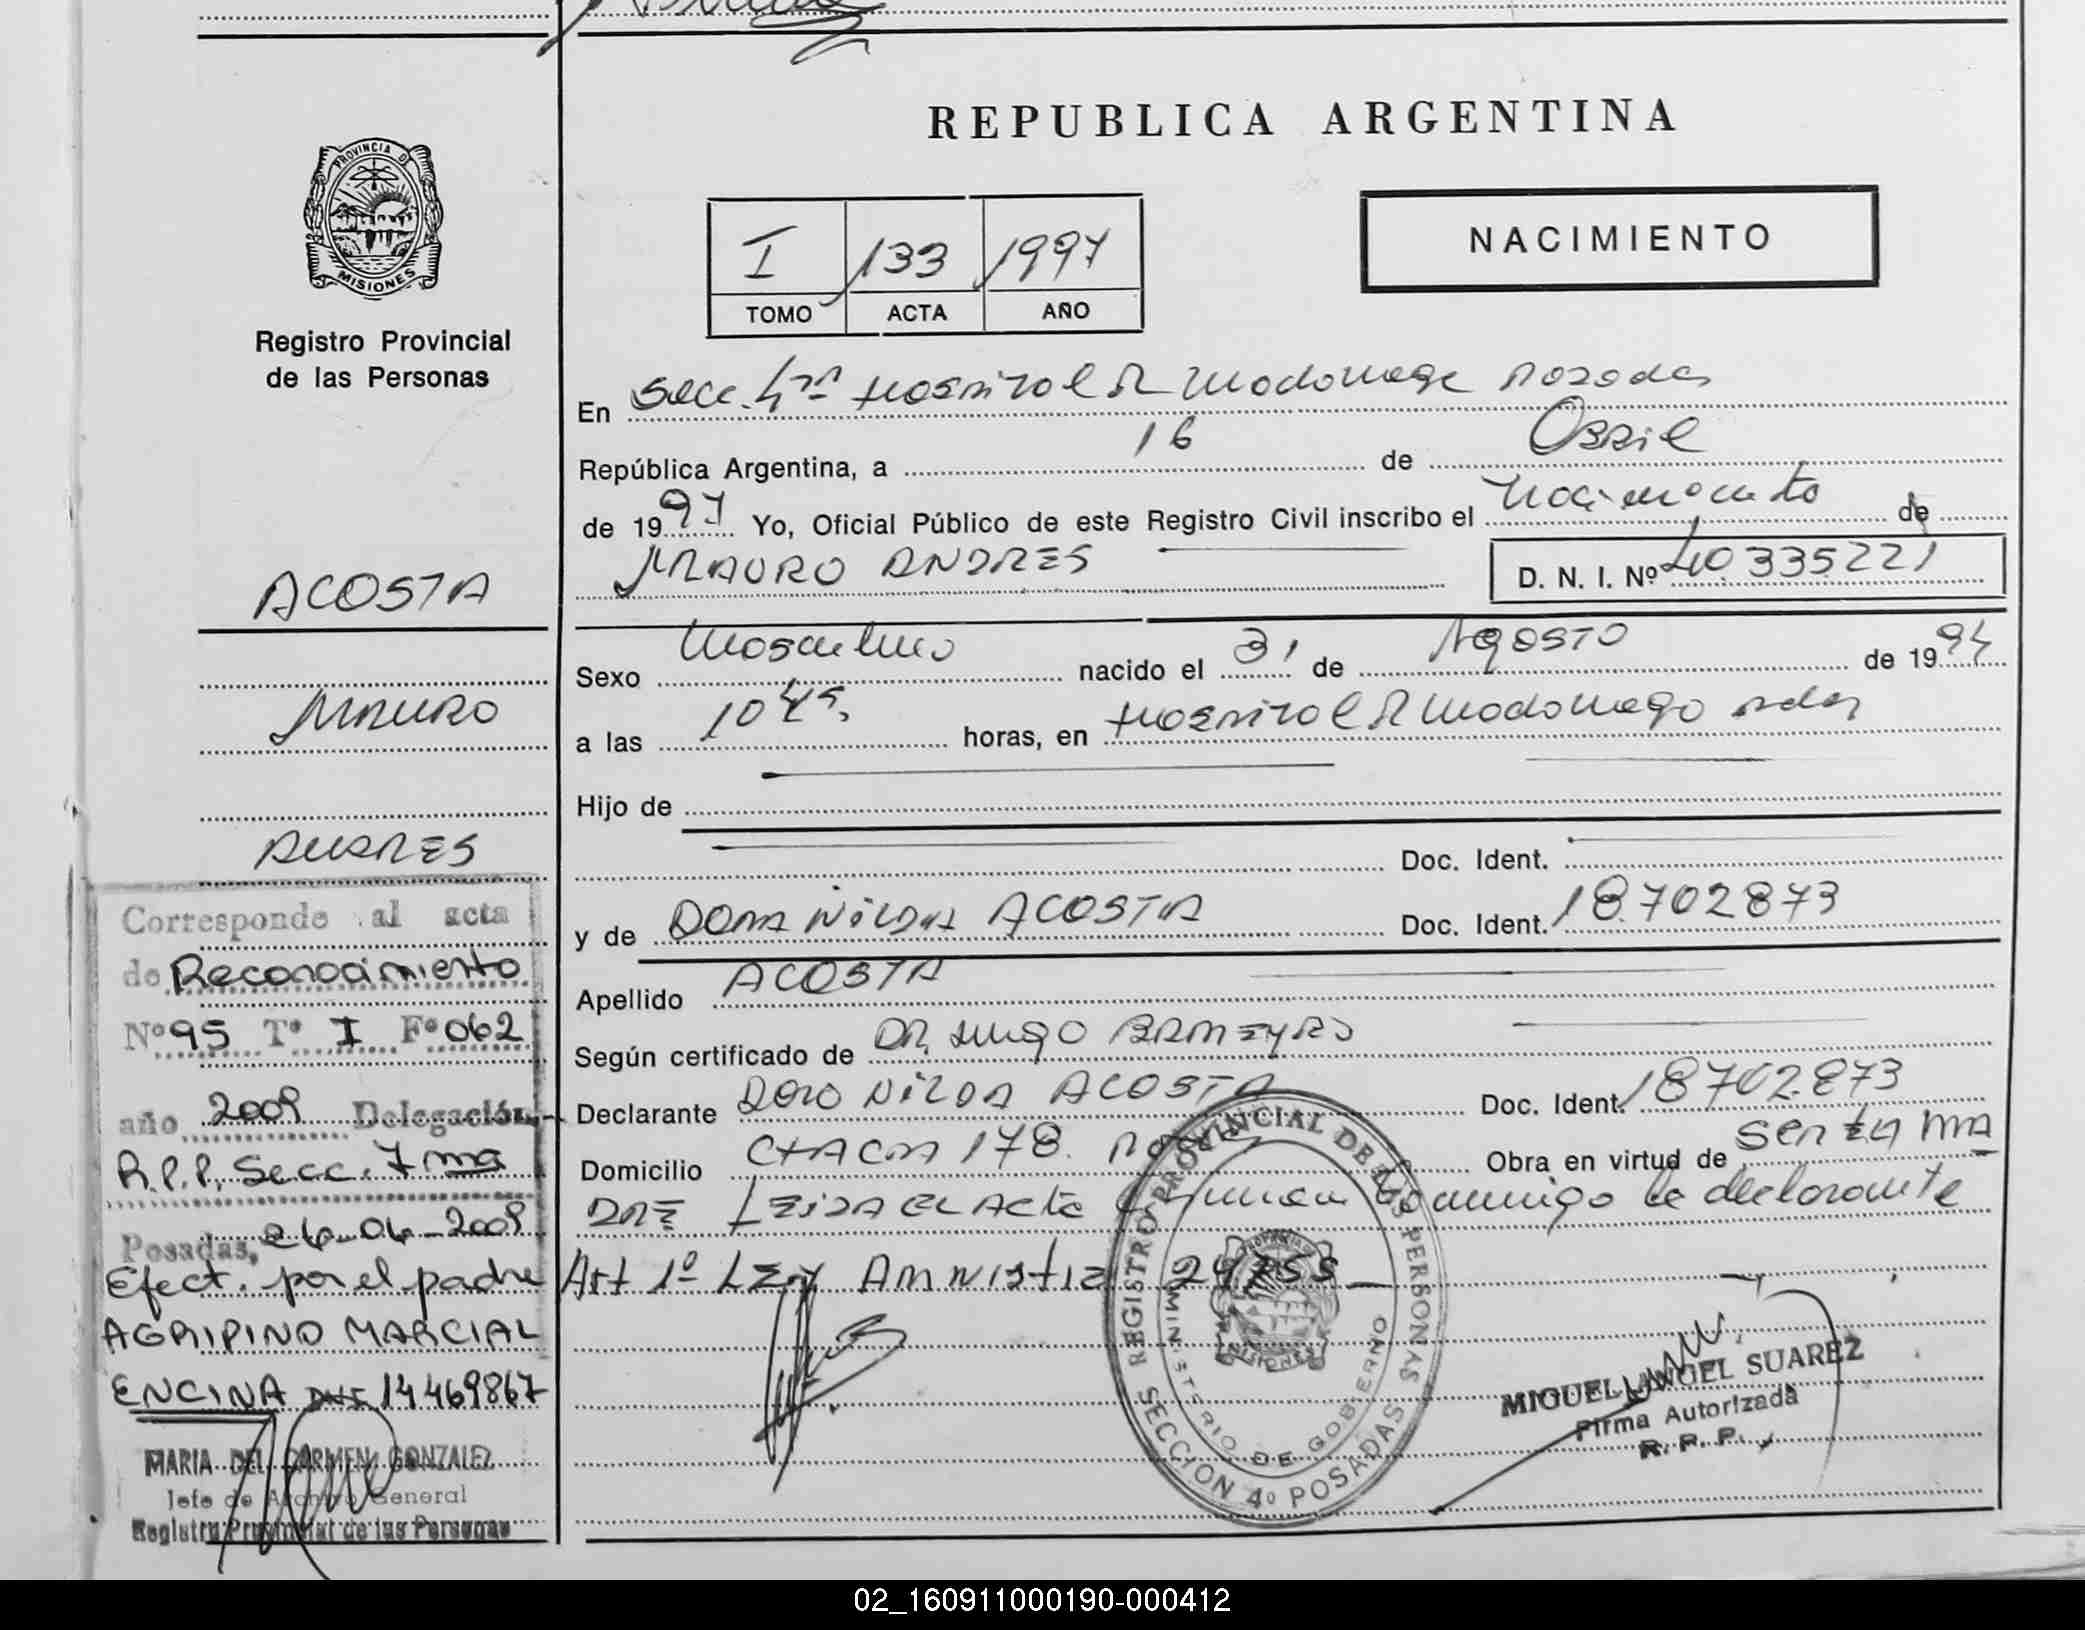 REPUBLICA ARGENTINA
PROVINCIA DE
MISIONES
Registro Provincial
de las Personas
I 133 1997
TOMO ACTA AÑO
NACIMIENTO
En Secc. 4ta Hospital R Madariaga Posadas
República Argentina, a 16 de Abril
de 1997 Yo, Oficial Público de este Registro Civil inscribo el nacimiento de
MAURO ANDRES
D. N. I. Nº 40.335.221
Sexo Masculino nacido el 31 de Agosto de 1994
a las 10 45. horas, en Hospital R Madariaga Pdas
Hijo de
Doc. Ident.
y de Doña Nilda ACOSTA Doc. Ident. 18.702873
Apellido ACOSTA
Según certificado de DR. Hugo
Declarante Nilda ACOSTA Doc. Ident. 18702.873
Domicilio CHACRA 178. Obra en virtud de ser la mA
DRE Leida el Acta conmigo la declarante
Art 1º Ley Amnistia 24755
REGISTRO PROVINCIAL DE LAS PERSONAS
SECCION 4º POSADAS
MINISTERIO DE GOBIERNO
MISIONES
MIGUEL ANGEL SUAREZ
Firma Autorizada
R. P. P.
ACOSTA
MAURO
ANDRES
Corresponde al acta
de Reconocimiento
Nº 95 Tº I Fº 062
año 2009 Delegación
R.P.P. Secc. 7ma
Posadas, 26-06-2009
Efect. por el padre
AGRIPINO MARCIAL
ENCINA DNI 14469867
MARIA DEL CARMEN GONZALEZ
Jefe de Archivo General
Registro Provincial de las Personas
02_160911000190-000412